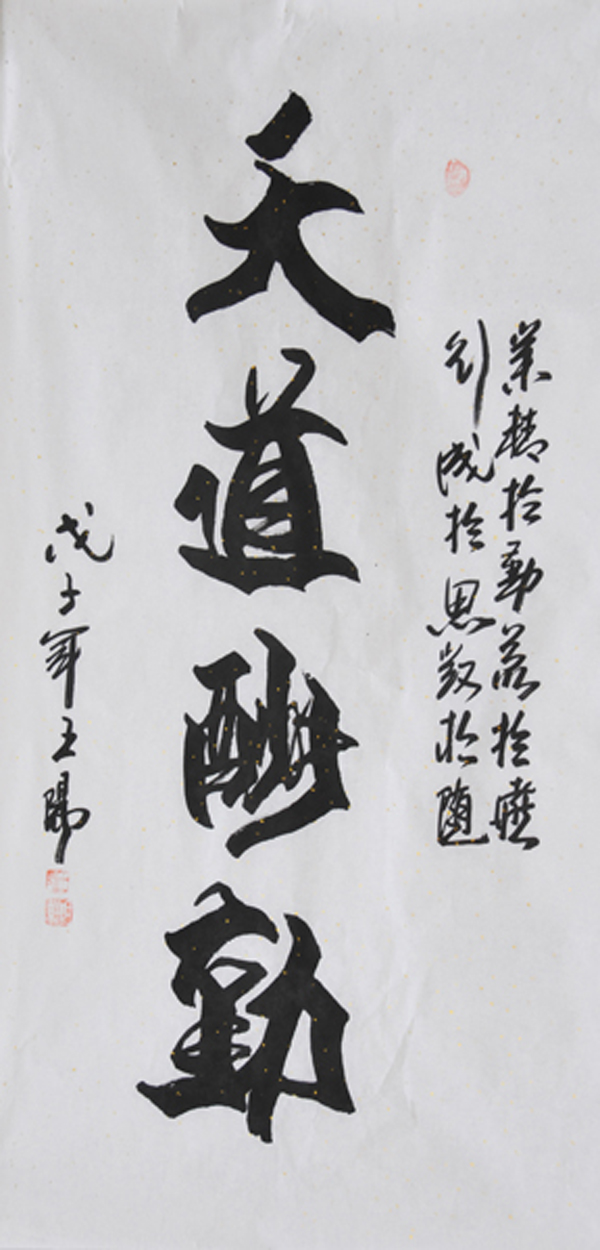 業精於勤荒於嬉
行成於思毀於隨
天道酬勤
戊子年王陽